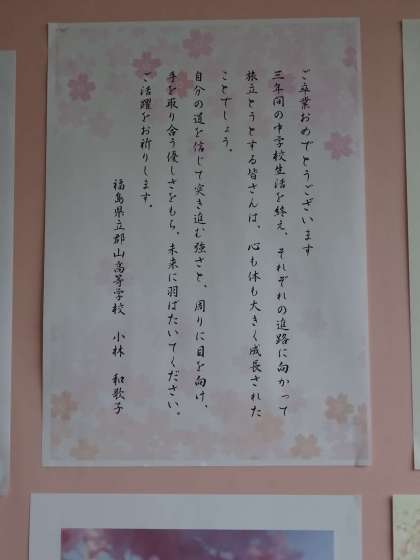 ご卒業おめでとうございます
三年間の中学校生活を終え、それぞれの進路に向かって
旅立とうとする皆さんは、心も体も大きく成長された
ことでしょう。
自分の道を信じて突き進む強さと、周りに目を向け、
手を取り合う優しさをもち、未来に羽ばたいてください。
ご活躍をお祈りします。
福島県立郡山高等学校 小林 和歌子